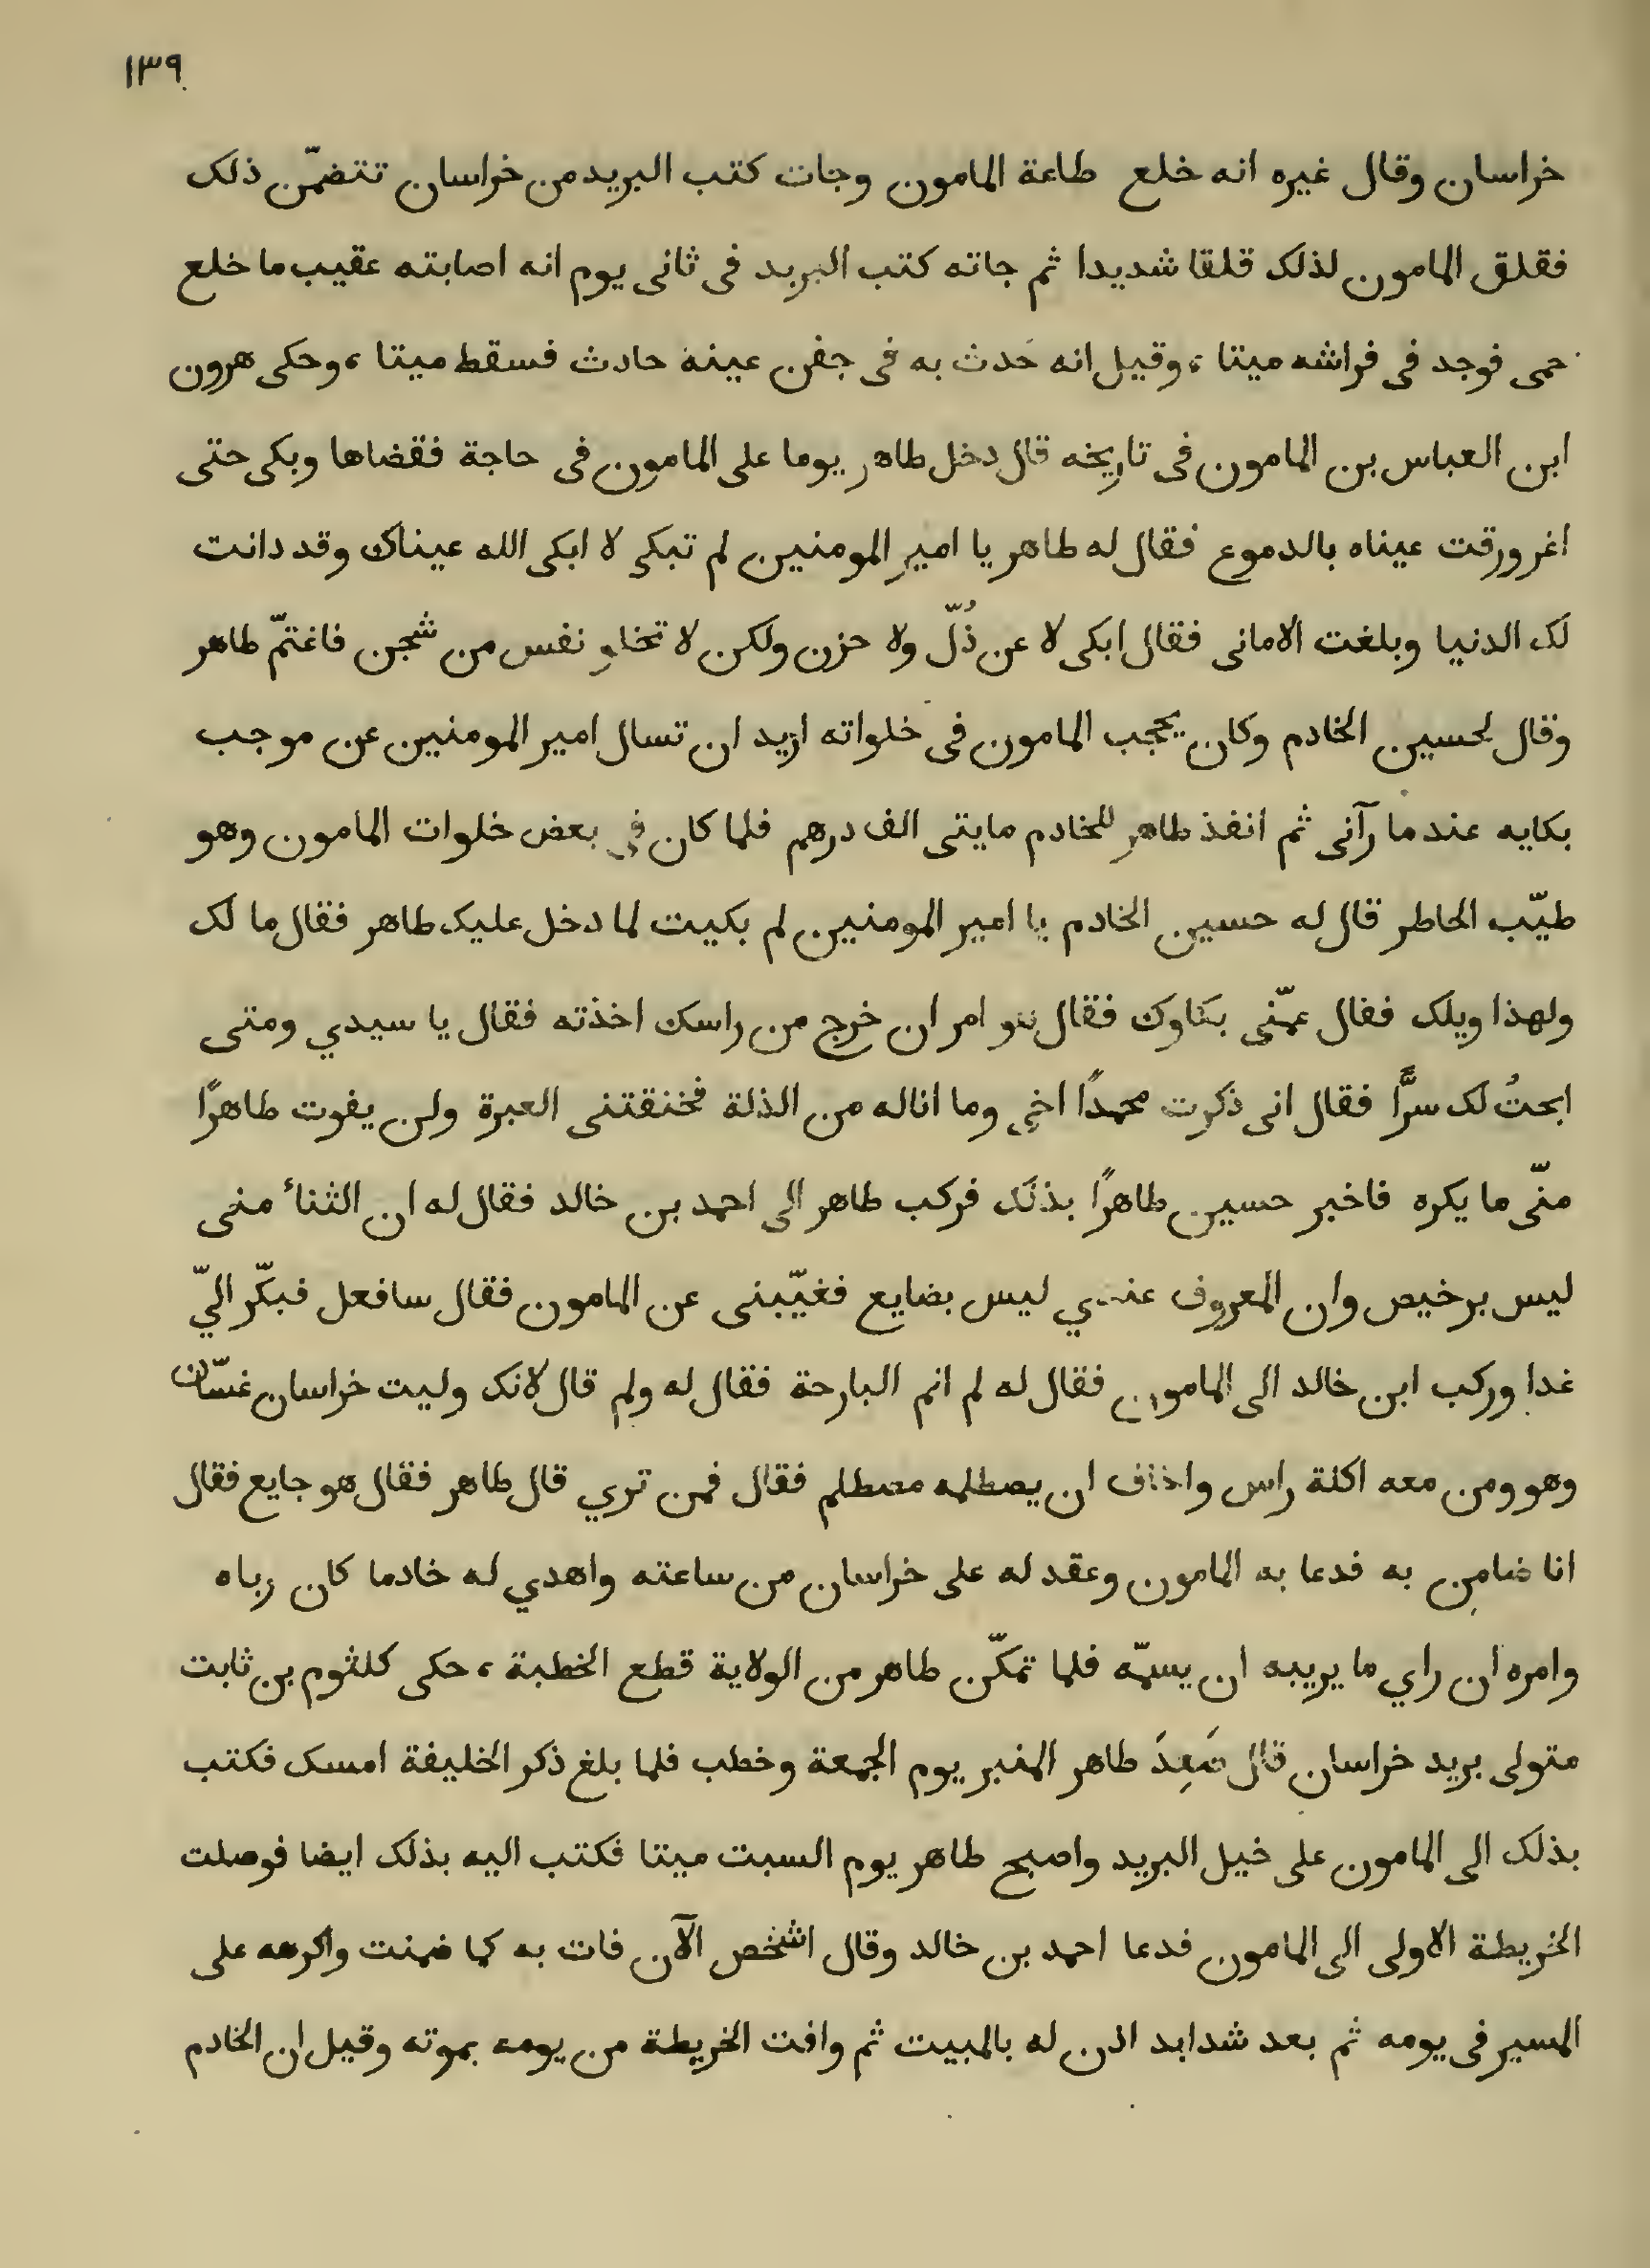 ١٣٩
خراسان وقال غيره انه خلع طاعة المامون وجات كتب البريد من خراسان تتضمّن ذلك
فقلق المامون لذلك قلقا شديدا ثم جاته كتب البريد فى ثانى يوم انه اصابته عقيب ما خلع
حمى فوجد فى فراشه ميتا ، وقيل انه حَدث به فى جفن عينه حادث فسقط ميتا ، وحكى هرون
ابن العباس بن المامون فى تاريخه قال دخل طاهر يوما على المامون فى حاجة فقضاها وبكى حتى
اغرورقت عيناه بالدموع فقال له طاهر يا امير المومنين لم تبكى لا ابكى الله عيناك وقد دانت
لك الدنيا وبلغت الامانى فقال ابكى لا عن ذُلّ ولا حزن ولكن لا تخلو نفس من شجن فاغتمّ طاهر
وقال لحسين الخادم وكان يحجب المامون فى خلواته اريد ان تسال امير المومنين عن موجب
بكايه عندما رآنى ثم انفذ طاهر للخادم مايتى الف درهم فلما كان فى بعض خلوات المامون وهو
طيّب الخاطر قال له حسين الخادم يا امير المومنين لم بكيت لما دخل عليك طاهر فقال ما لك
ولهذا ويلك فقال غمّنى بكاوك فقال هو امر ان خرج من راسك اخذته فقال يا سيدي ومتى
ابحتُ لك سرًّا فقال انى ذكرت محمدًا اخى وما اناله من الذلة فخنقتنى العبرة ولن يفوت طاهرًا
منّى ما يكره فاخبر حسين طاهرًا بذلك فركب طاهر الى احمد بن خالد فقال له ان الثناء منى
ليس برخيص وان المعروف عندي ليس بضايع فغيّبنى عن المامون فقال سافعل فبكّر اليّ
غدا وركب ابن خالد الى المامون فقال له لم انم البارحة فقال له ولم قال لانك وليت خراسان غسّان
وهو ومن معه اكلة راس واخاف ان يصطلمه مصطلم فقال فمن تري قال طاهر فقال هو جايع فقال
انا ضامن به فدعا به المامون وعقد له على خراسان من ساعته واهدي له خادما كان رباه
وامره ان راي ما يريبه ان يسمّه فلما تمكّن طاهر من الولاية قطع الخطبة ، حكى كلثوم بن ثابت
متولى بريد خراسان قال صَعِدَ طاهر المنبر يوم الجمعة وخطب فلما بلغ ذكر الخليفة امسك فكتب
بذلك الى المامون على خيل البريد واصبح طاهر يوم السبت ميتا فكتب اليه بذلك ايضا فوصلت
الخريطة الاولى الى المامون فدعا احمد بن خالد وقال اشخص الآن فات به كما ضمنت واكرهه على
المسير فى يومه ثم بعد شدايد اذن له بالمبيت ثم وافت الخريطة من يومه بموته وقيل ان الخادم